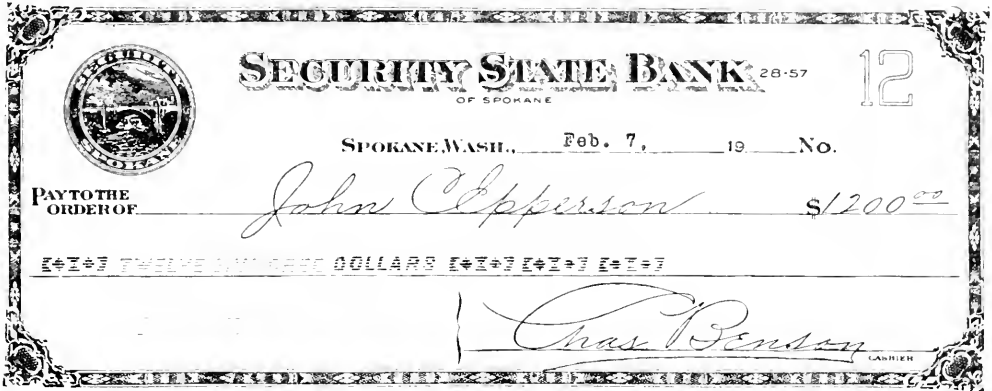 SECURITY STATE BANK 28-57 12
OF SPOKANE
SECURITY
SPOKANE
SPOKANE, WASH., Feb. 7, 19 No.
PAY TO THE ORDER OF John C Epperson $1200 00
TWELVE HUNDRED DOLLARS
Chas Benson
CASHIER